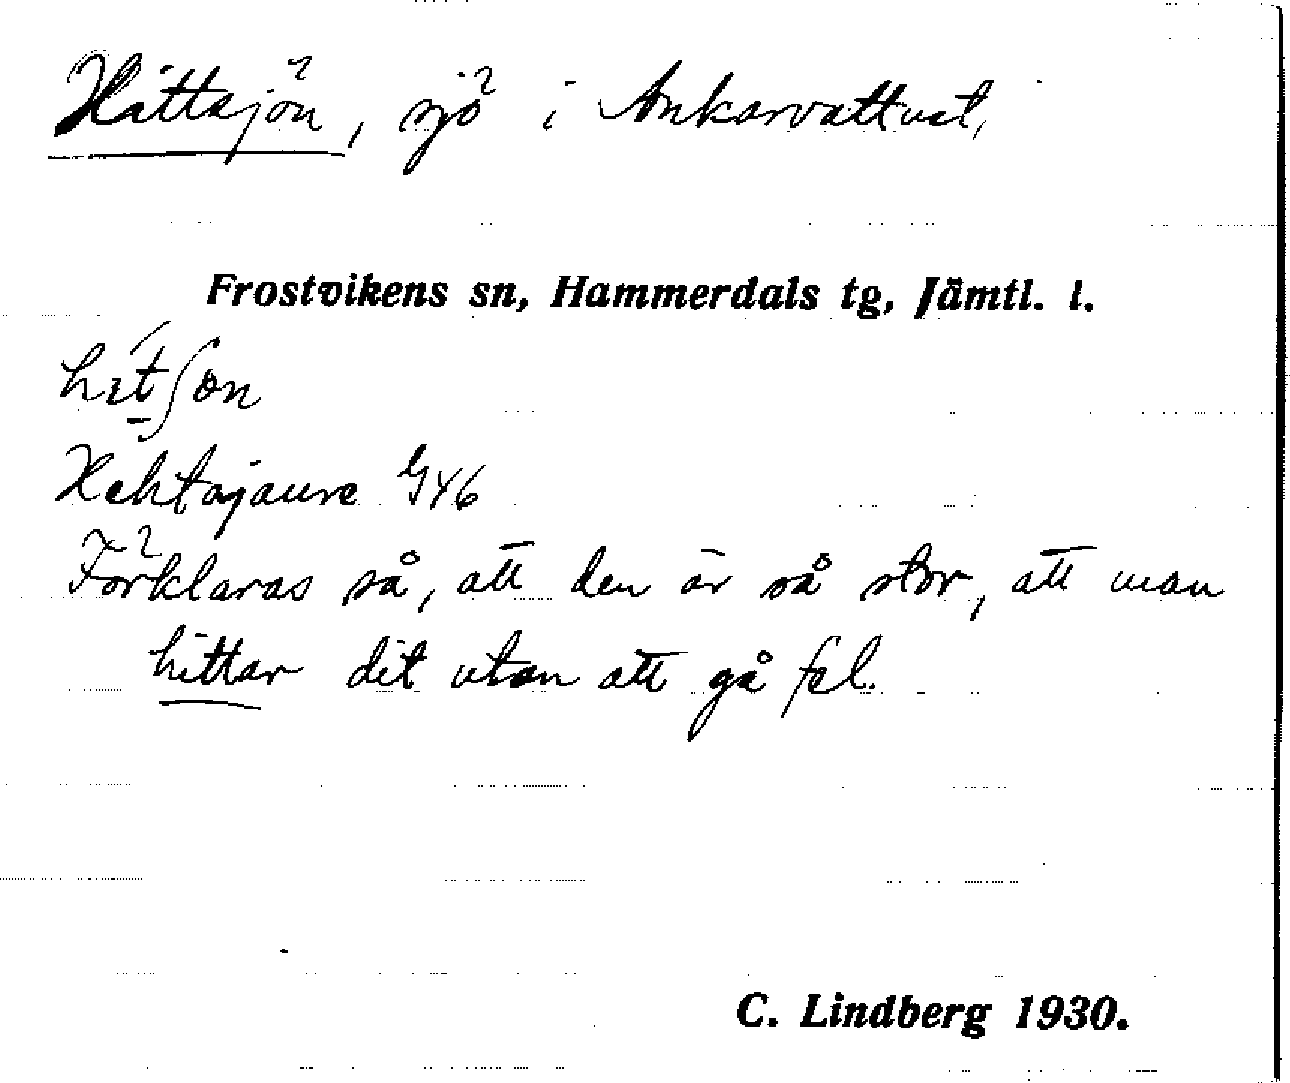 Hittsjön, sjö i Ankarvattnet,
Frostvikens sn, Hammerdals tg, Jämtl. l.
hɪ́t̠ʃön
Hehtajaure G46
Förklaras så, att den är så stor, att man
hittar dit utan att gå fel.
C. Lindberg 1930.